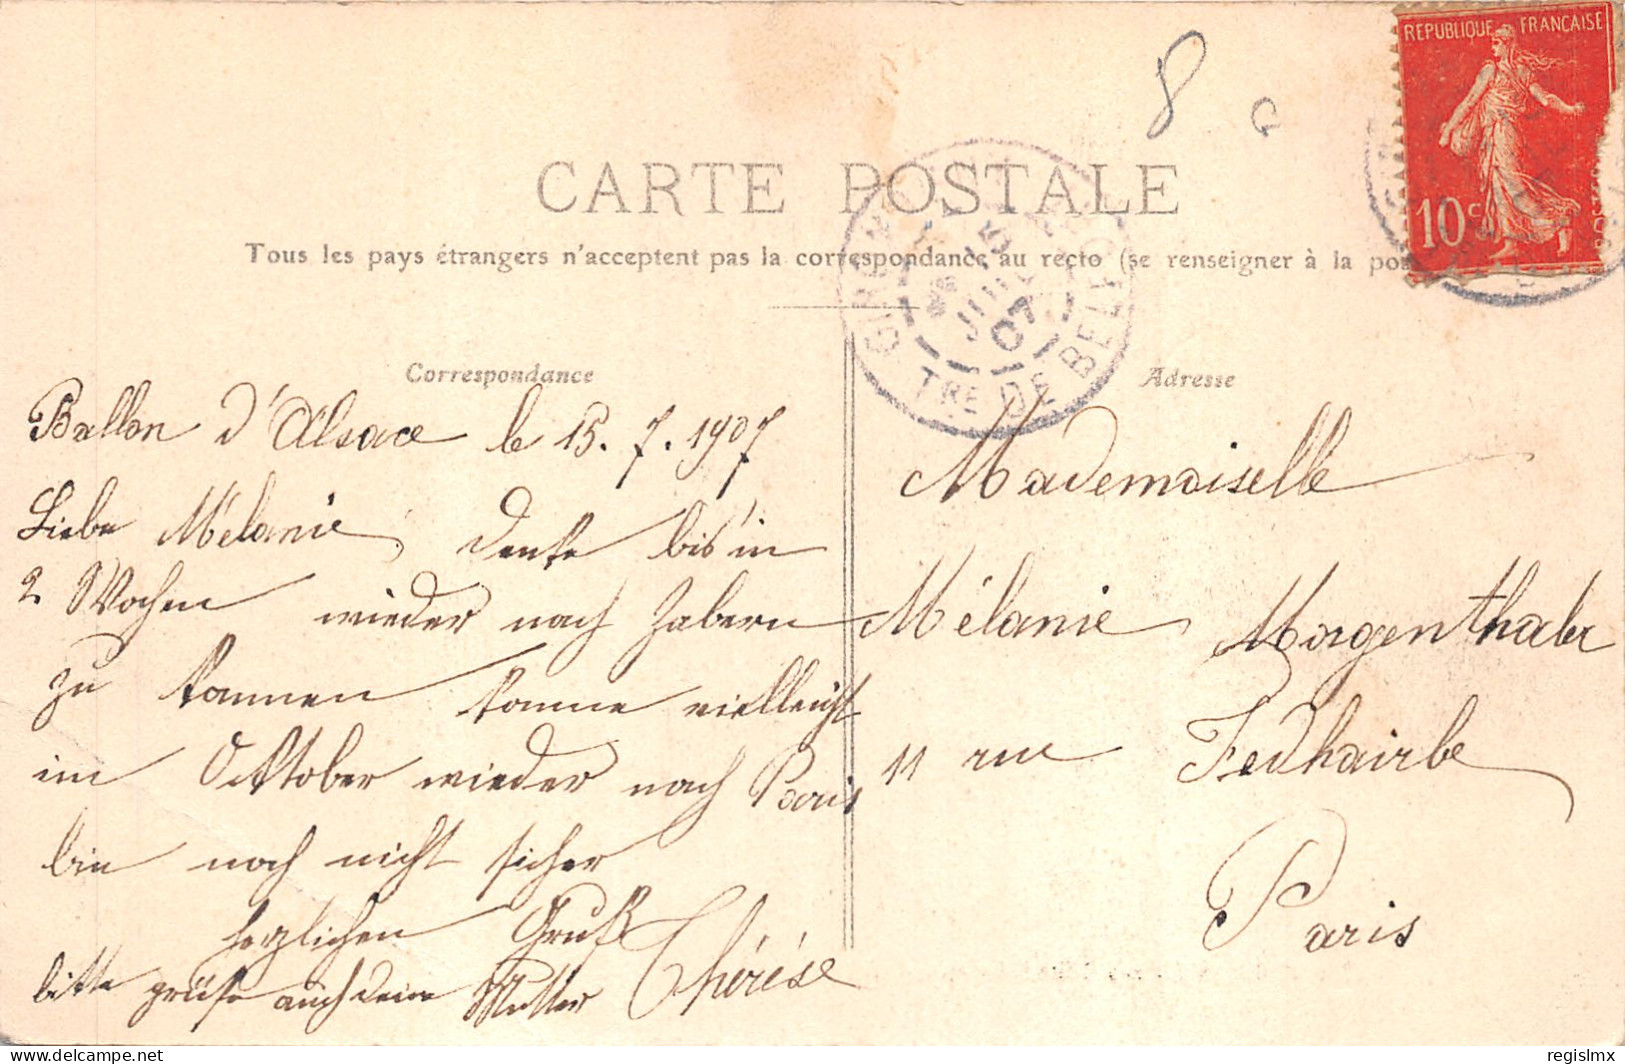 8
REPUBLIQUE FRANÇAISE
10c
CARTE POSTALE
Tous les pays étrangers n'acceptent pas la correspondance au recto (se renseigner à la pos
GIROMAGNY
15 JUIL 07
TRE DE BELFORT
Correspondance
Ballon d'Alsace le 15.7.1907
Liebe Mélanie, denke bis in
2 Wochen wieder nach Zabern
zu kommen komme vielleicht
im Octtober wieder nach Paris
bin noch nicht sicher
herzlichen Gruß Thérése
bitte grüße auch deine Mutter
Adresse
Mademoiselle
Mélanie Morgenthaler
11 rue Fedhairbe
Paris
delcampe.net
regislmx